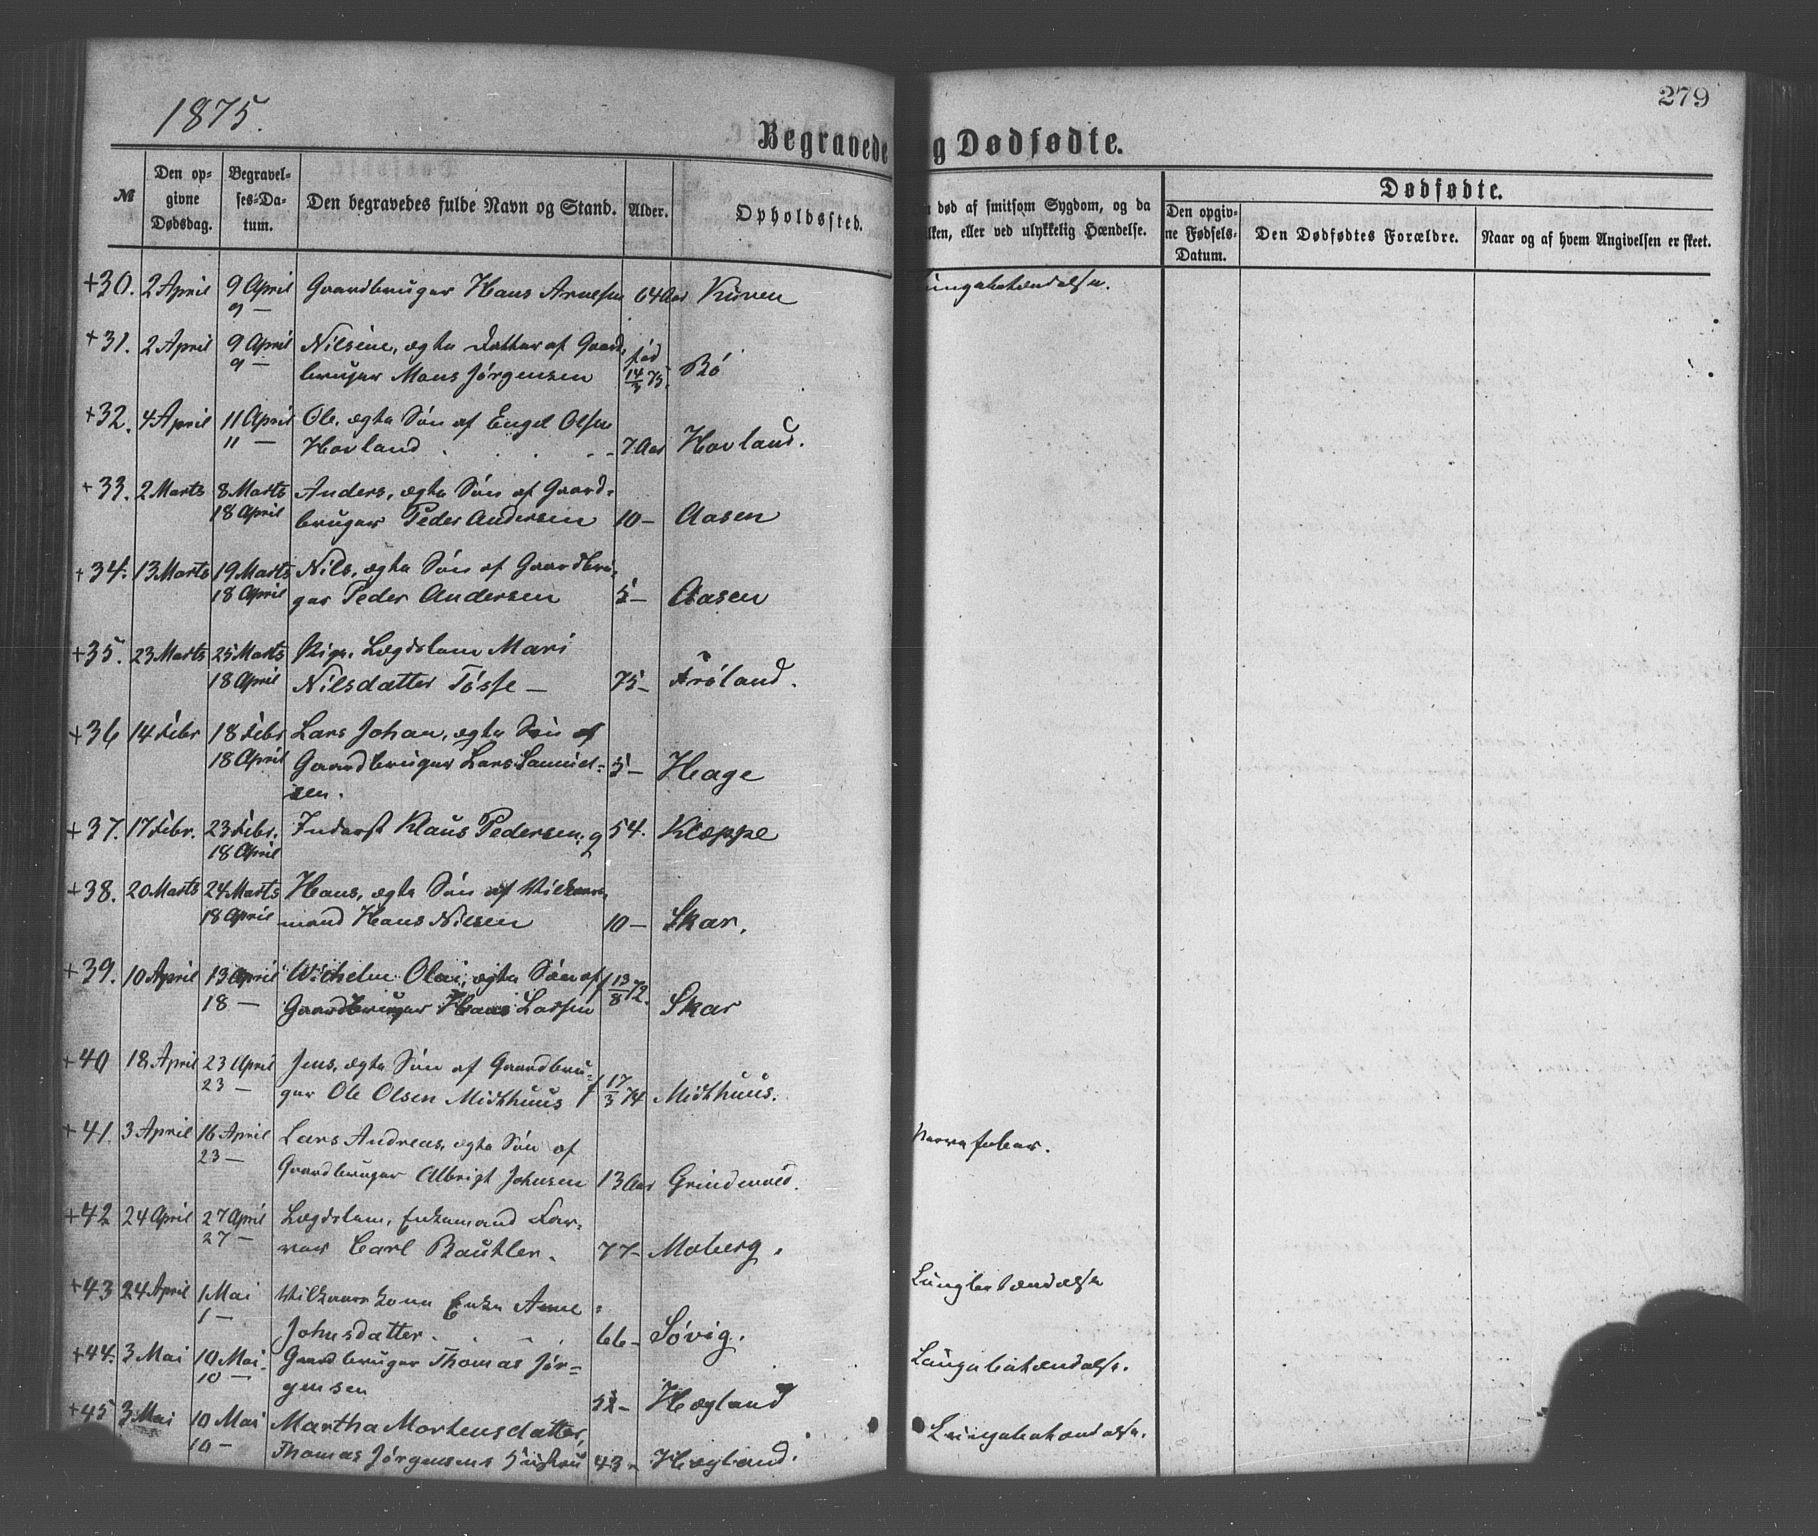 1875.
279
Begravede
g Dødfødte.
№
Den opgivne Dødsdag.
Begravelses-Datum.
Den begravedes fulde Navn og Stand.
Alder.
Opholdssted.
død af smitsom Sygdom, og da
lken, eller ved ulykkelig Hændelse.
Dødfødte.
Den opgivne Fødsels-Datum.
Den Dødfødtes Forældre.
Naar og af hvem Angivelsen er skeet.
+30. 2 April 9 April Gaardbruger Hans Arnesen 64 Aar Kuven
9 —
+31. 2 April 9 April Nilsine, ægte Datter af Gaard- fød
9 — bruger Mons Jørgensen 14/3 75. Bö
+32. 4 April 11 April Ole, ægte Sön af Engel Olsen
11 — Hovland 7 Aar Hovland.
+33. 2 Marts 8 Marts Anders, ægte Sön af Gaard-
18 April bruger Peder Andersen 10 — Aasen
+34. 13 Marts 19 Marts Nils, ægte Sön af Gaardbru-
18 April ger Peder Andersen 5 — Aasen
+35. 23 Marts 25 Marts Pige, Lægdslem Mari
18 April Nilsdatter Tösse — 75 — Fröland.
+36 14 Febr 18 Febr Lars Johan, ægte Sön af
18 April Gaardbruger Lars Samuel- 5 — Hage
sen.
+37. 17 Febr. 23 Febr. Inderst Klaus Pedersen, g 54. Klæppe
18 April
+38. 20 Marts 24 Marts Hans, ægte Sön af Vilkaars-
18 April mand Hans Nilsen 10 — Skar.
+39. 10 April 13 April Wilhelm Olai, ægte Sön af f 13/8 72.
18 — Gaardbruger Hans Larsen Skar
+40 18 April 23 April Jens, ægte Sön af Gaardbru-
23 — ger Ole Olsen Midthuus f 17/3 74 Midthuus.
+41. 3 April 16 April Lars Andreas, ægte Sön af
23 — Gaardbruger Albrigt Johnsen 13 Aar Grindevold.
+42 24 April 27 April Lægdslem, Enkemand Far-
27 — ver Carl Bautler. 77 — Moberg.
+43 24 April 1 Mai Vilkaarskone Enke Anne
1 — Johnsdatter. 66 — Sövig.
+44. 3 Mai 10 Mai. Gaardbruger Thomas Jör-
10 — gensen 52 — Hægland
+45 3 Mai 10 Mai Martha Mortensdatter,
10 — Thomas Jørgensens Hustru 43 — Hægland.
ungebetændelse.
Nervefeber.
Lungbetændelse
Lungebetændelse.
Lungebetændelse.